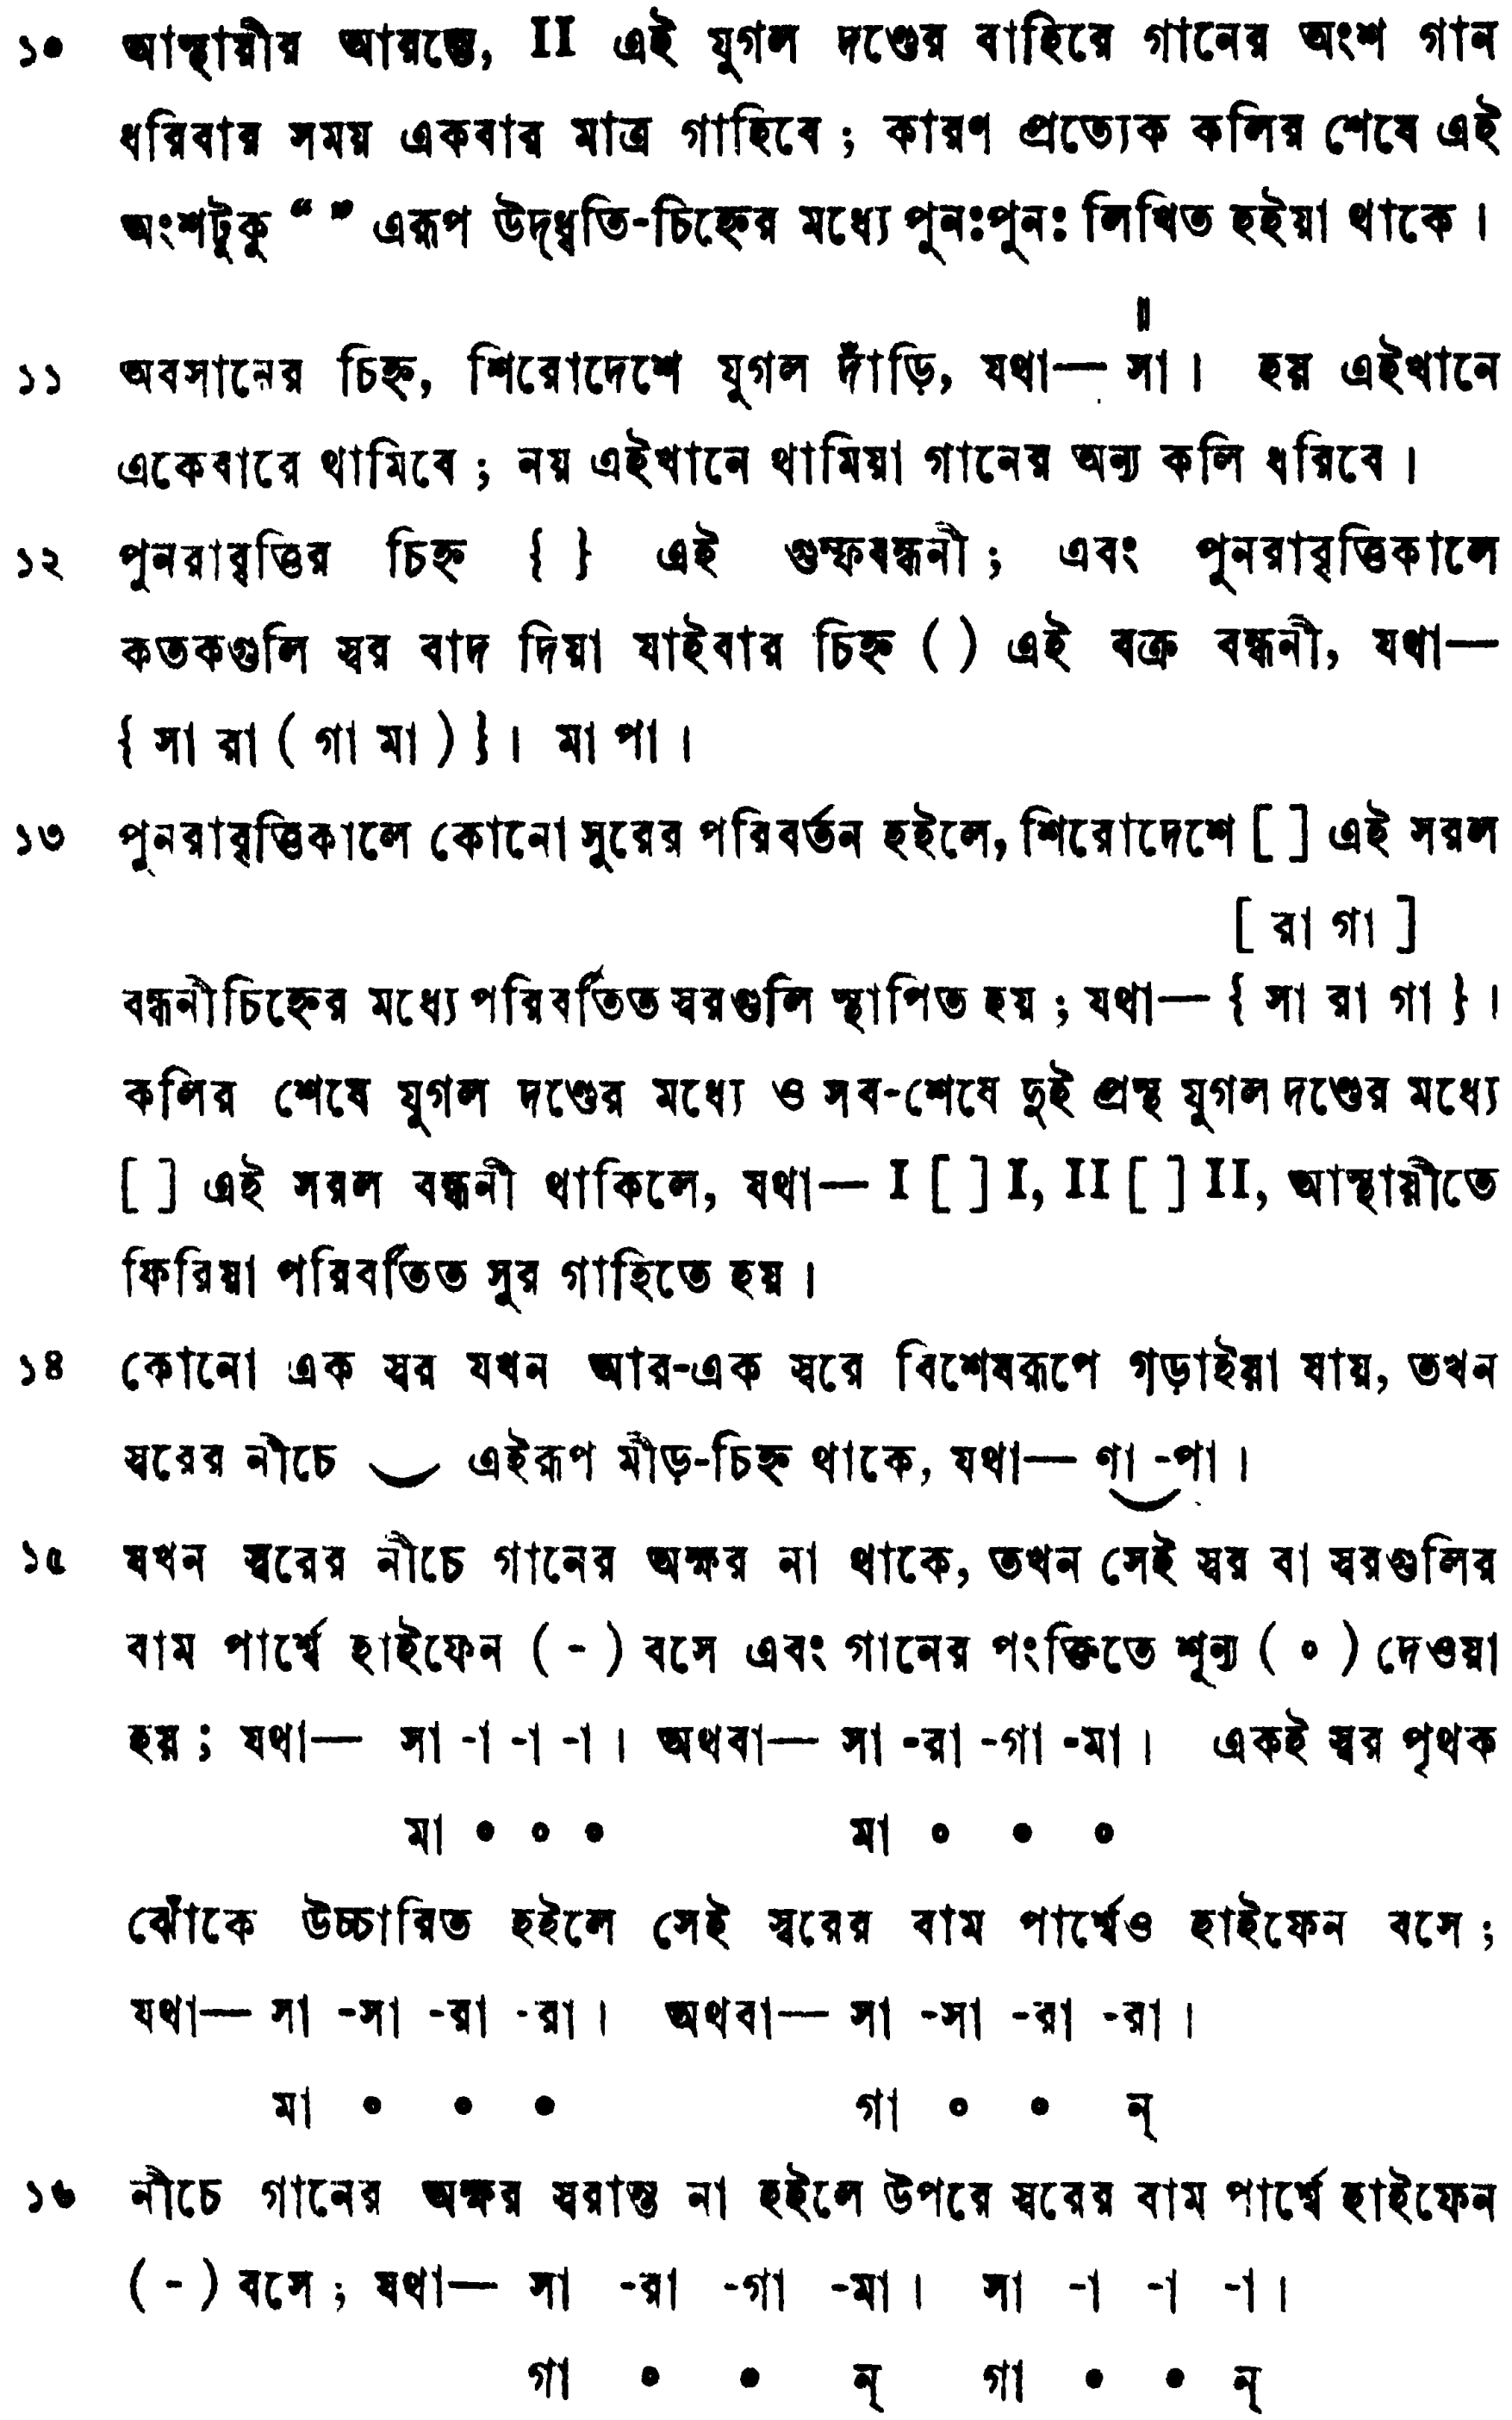 ১০ আস্থায়ীর আরম্ভে, II এই যুগল দণ্ডের বাহিরে গানের অংশ গান
ধরিবার সময় একবার মাত্র গাহিবে ; কারণ প্রত্যেক কলির শেষে এই
অংশটুকু “ ” এরূপ উদ্ধৃতি-চিহ্নের মধ্যে পুনঃপুনঃ লিখিত হইয়া থাকে ।
॥
১১ অবসানের চিহ্ন, শিরোদেশে যুগল দাঁড়ি, যথা— সা । হয় এইখানে
একেবারে থামিবে ; নয় এইখানে থামিয়া গানের অন্য কলি ধরিবে ।
১২ পুনরাবৃত্তির চিহ্ন { } এই গুম্ফবন্ধনী ; এবং পুনরাবৃত্তিকালে
কতকগুলি স্বর বাদ দিয়া যাইবার চিহ্ন ( ) এই বক্র বন্ধনী, যথা—
{ সা রা ( গা মা ) } । মা পা ।
১৩ পুনরাবৃত্তিকালে কোনো সুরের পরিবর্তন হইলে, শিরোদেশে [ ] এই সরল
[ রা গা ]
বন্ধনীচিহ্নের মধ্যে পরিবর্তিত স্বরগুলি স্থাপিত হয় ; যথা— { সা রা গা } ।
কলির শেষে যুগল দণ্ডের মধ্যে ও সব-শেষে দুই প্রস্থ যুগল দণ্ডের মধ্যে
[ ] এই সরল বন্ধনী থাকিলে, যথা— I [ ] I, II [ ] II, আস্থায়ীতে
ফিরিয়া পরিবর্তিত সুর গাহিতে হয় ।
১৪ কোনো এক স্বর যখন আর-এক স্বরে বিশেষরূপে গড়াইয়া যায়, তখন
স্বরের নীচে ‿ এইরূপ মীড়-চিহ্ন থাকে, যথা— ণা -পা ।
‿
১৫ যখন স্বরের নীচে গানের অক্ষর না থাকে, তখন সেই স্বর বা স্বরগুলির
বাম পার্শ্বে হাইফেন ( - ) বসে এবং গানের পংক্তিতে শূন্য ( ০ ) দেওয়া
হয় ; যথা— সা -া -া -া । অথবা— সা -রা -গা -মা । একই স্বর পৃথক
মা ০ ০ ০ মা ০ ০ ০
ঝোঁকে উচ্চারিত হইলে সেই স্বরের বাম পার্শ্বেও হাইফেন বসে ;
যথা— সা -সা -রা -রা । অথবা— সা -সা -রা -রা ।
মা ০ ০ ০ গা ০ ০ ন্
১৬ নীচে গানের অক্ষর স্বরান্ত না হইলে উপরে স্বরের বাম পার্শ্বে হাইফেন
( - ) বসে ; যথা— সা -রা -গা -মা । সা -া -া -া ।
গা ০ ০ ন্ গা ০ ০ ন্